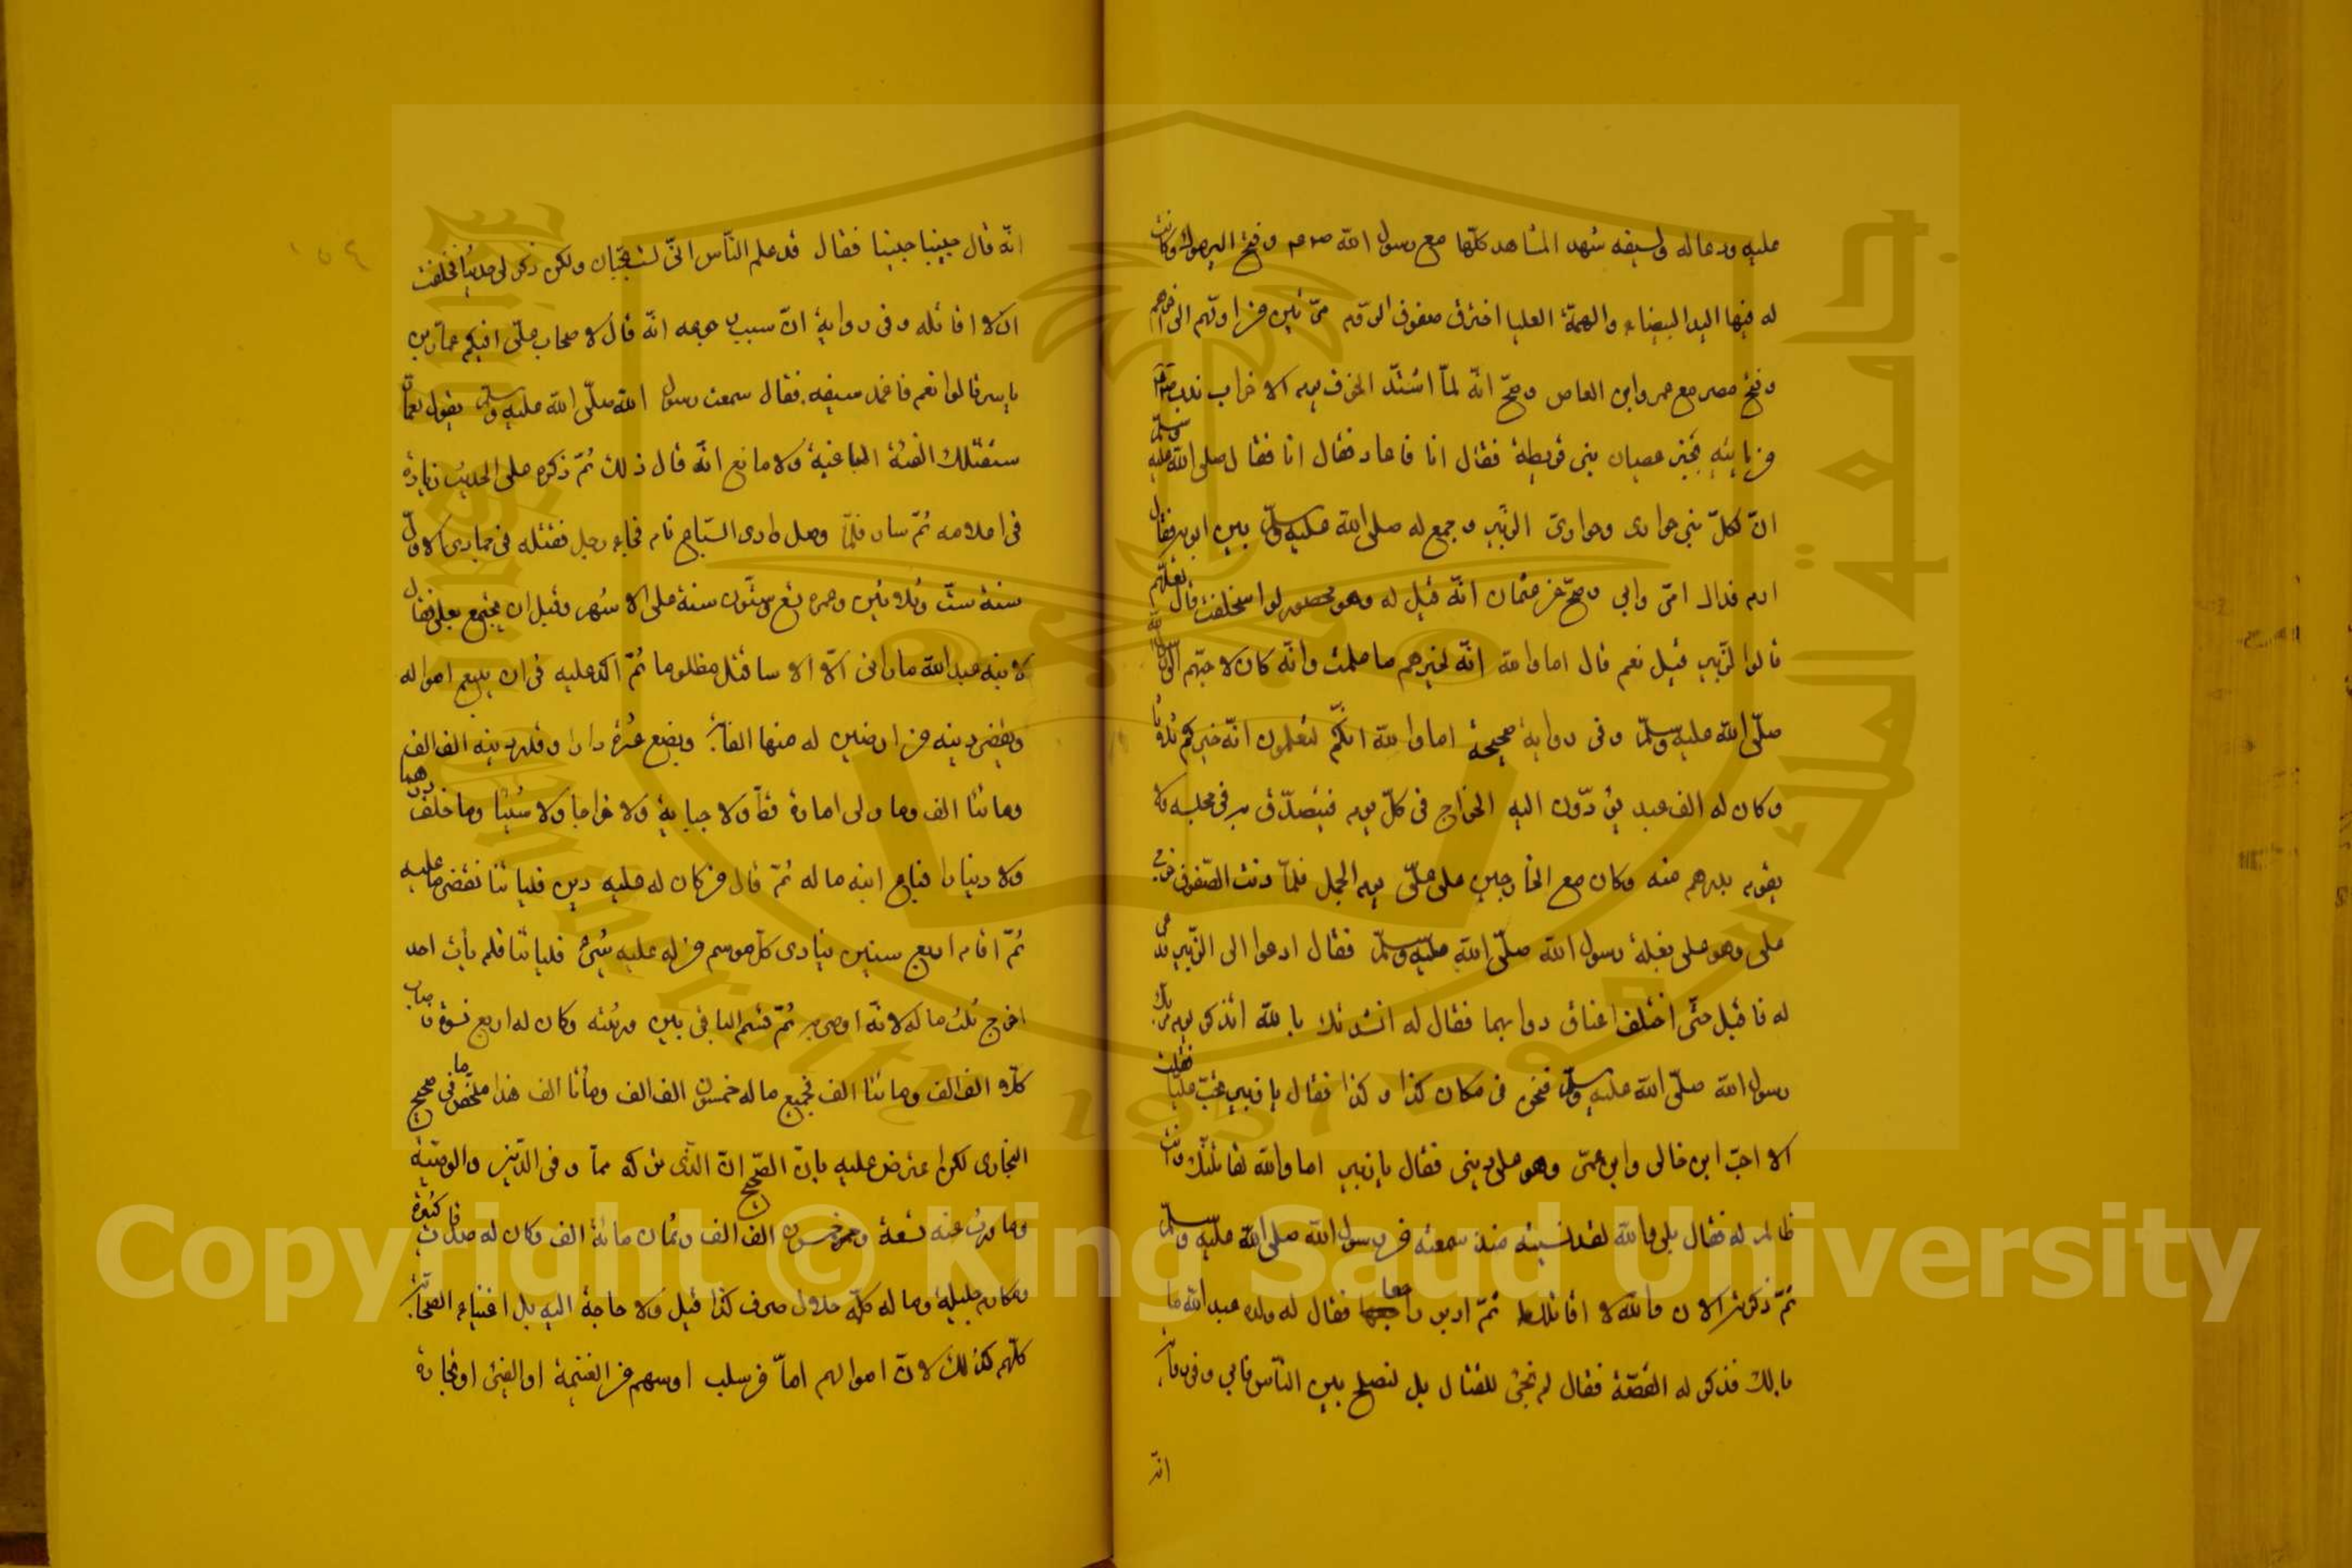 عليه ودعا له ولسيفه شهد المشاهد كلّها مع رسول الله صلعم وفتح اليرموك وكانت
له فيها اليد البيضاء والهمّة العليا اخترق صفوف الروم مرّتين من اوّلهم الى اخرهم
وفتح مصر مع عمرو ابن العاص وصحّ انّه لمّا اشتدّ الخوف يوم الاحزاب ندب صلّى الله عليه وسلّم
من ياتيه بخبر عصيان بنى قريظة فقال انا فاعاد فقال انا فقال صلى الله عليه وسلّم
انّ لكلّ نبى حوارى وحوارىّ الزبير وجمع له صلى الله عليه وسلّم بين ابويه فقال
ارم فداك امّى وابى وصحّ عن عثمان انّه قيل له وهو محصور لو استخلفت قال لعلّهم
قالوا الزّبير قيل نعم قال اما والله انّه لخيرهم ما علمت وانّه كان لاحبّهم الى رسول الله
صلّى الله عليه وسلّم وفى رواية صحيحة اما والله انّكم لتعلمون انّه خيركم ثلاثا
وكان له الف عبد يؤدّون اليه الخراج فى كلّ يوم فيتصدّق به فى مجلسه ولا
يقوم بدرهم منه وكان مع الخارجين على علىّ يوم الجمل فلمّا دنت الصّفوف خرج
على وهو على بغلة رسول الله صلّى الله عليه وسلّم فقال ادعوا الى الزّبير فدعى
له فاقبل حتّى اختلف اعناق دوابهما فقال له انشدتك بالله اتذكر يوم مرّ بك
رسول الله صلّى الله عليه وسلّم ونحن فى مكان كذا وكذا فقال يا زبير تحبّ عليّا فقلت
الا احبّ ابن خالى وابن عمّى وهو على دينى فقال يا زبير اما والله لتقاتلنّك وانت
ظالم له فقال بلى والله لقد نسيته منذ سمعته من رسول الله صلى الله عليه وسلّم
ثمّ ذكرته الان والله لا اقاتلك ثمّ ادبر راجعا فقال له ولده عبد الله ما
بالك فذكر له القصّة فقال لم تجئ للقتال بل لتصلح بين النّاس فابى وفى رواية
انّه
١٥٤
انّه قال جبينا جبينا فقال قد علم النّاس انّى لست بجبان ولكن ذكر لى حديثا فحلفت
ان لا اقاتله وفى رواية انّ سبب رجوعه انّه قال لاصحاب علّى افيكم عمّار بن
ياسر قالوا نعم فاغمد سيفه فقال سمعت رسول الله صلّى الله عليه وسلّم يقول لعمّار
ستقتلك الفئة الباغية ولا مانع انّه قال ذلك ثمّ ذكره على الحديث زيادة
فى اعلامه ثمّ سار فلمّا وصل وادى السّباع نام فجاءه رجل فقتله فى جمادى الاول
سنة ستّ وثلاثين وعمره سبع وستّون سنة على الاشهر وقبل ان يجتمع بعلى فقال
لابنه عبد الله ما رانى الّا الا ساقتل مظلوما ثمّ اكد عليه فى ان يبيع امواله
ويقضى دينه من ارضين له منها الغابة وبضع عشرة دارا وقدر دينه الف الف
ومائتا الف وما ولى امارة قطّ ولا جباية ولا خراجا ولا شيئا وما خلّف درهما
ولا دينارا فباع ابنه ماله ثمّ قال من كان له عليه دين فلياتنا نقضى ما عليه
ثمّ اقام اربع سنين ينادى كلّ موسم من له عليه شئ فلياتنا فلم يأت احد
اخرج ثلث ماله لانّه اوصى به ثمّ قسم الباقى بين ورثته وكان له اربع نسوة فاصاب
كلّه الف الف ومائتا الف فجميع ماله خمسون الف الف ومأتا الف هذا ملخّص ما فى صحيح
البخارى لكن اعترض عليه بان الصّحيح انّ الذّى تركه ممّا وفى الدّين والوصيّة
وما ورث عنه تسعة وخمسون الف الف وثمان مائة الف وكان له صدقات كثيرة
ومكارم جليلة وماله كلّه حلال صرف كذا قيل ولا حاجة اليه بل اغنياء الصّحابة
كلّهم كذلك لانّ اموالهم امّا من سلب او سهم من الغنيمة او الفئ او تجارة
Copyright © King Saud University
1957